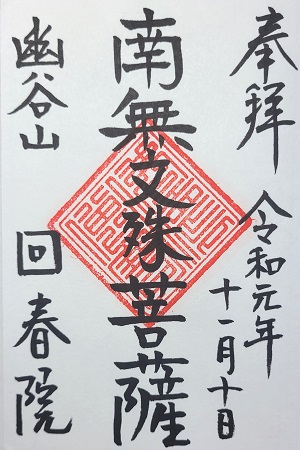 奉拝
令和元年
十一月十日
南無文殊菩薩
幽谷山
回春院